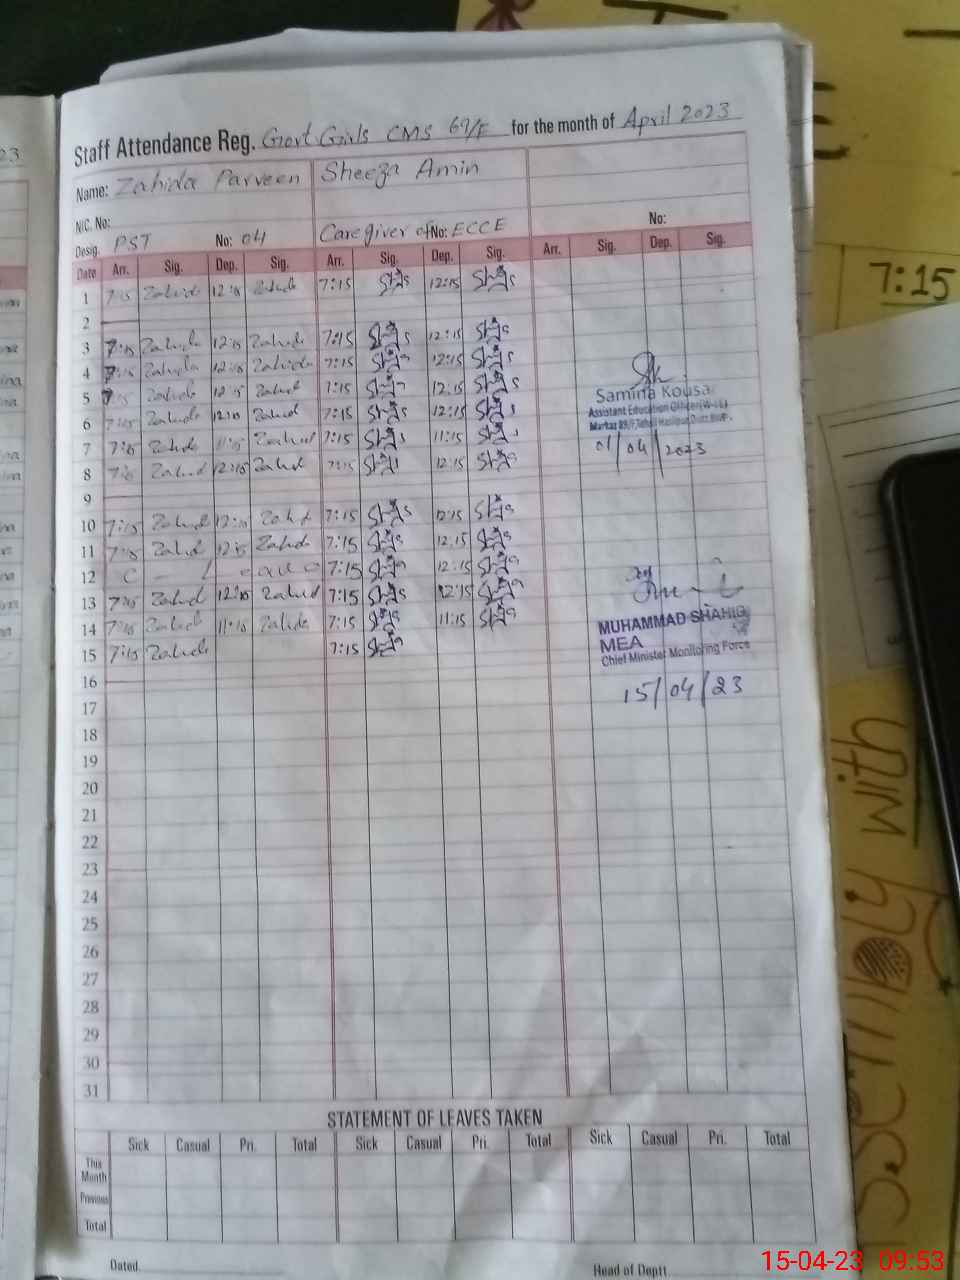 Staff Attendance Reg. Govt Girls CMS 69/F for the month of April 2023
Name: Zahida Parveen Sheeza Amin
NIC. No:
Desig. PST No: 04 Caregiver of No: ECCE No:
Date Arr. Sig. Dep. Sig. Arr. Sig. Dep. Sig. Arr. Sig. Dep. Sig.
1 7:15 Zahida 12:15 Zahida 7:15 12:15
2
3 7:15 Zahida 12:15 Zahida 7:15 12:15
4 7:15 Zahida 12:15 Zahida 7:15 12:15
5 7:15 Zahida 12:15 Zahid 7:15 12:15
6 7:15 Zahida 12:15 Zahid 7:15 12:15
7 7:15 Zahida 11:15 Zahid 7:15 11:15
8 7:15 Zahid 12:15 Zahid 7:15 12:15
9
10 7:15 Zahid 12:15 Zahid 7:15 12:15
11 7:15 Zahid 12:15 Zahid 7:15 12:15
12 C - L - eave 7:15 12:15
13 7:15 Zahid 12:15 Zahid 7:15 12:15
14 7:15 Zahid 11:15 Zahida 7:15 11:15
15 7:15 Zahida 7:15
16
17
18
19
20
21
22
23
24
25
26
27
28
29
30
31
Samina Kousar
Assistant Education Officer (W-EE)
01/04/2023
MUHAMMAD SHAHID
MEA
Chief Minister Monitoring Force
15/04/23
STATEMENT OF LEAVES TAKEN
Sick Casual Pri. Total Sick Casual Pri. Total Sick Casual Pri. Total
This Month
Previous
Total
Dated Head of Deptt.
7:15
with
15-04-23 09:53